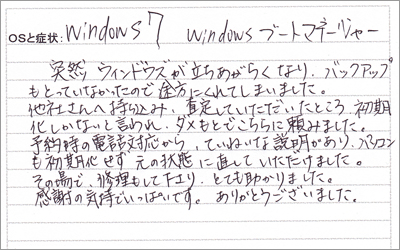 OSと症状: Windows7 Windows ブートマネージャー
突然 ウィンドウズが立ちあがらくなり、バックアップ
もとっていなかったので途方にくれてしまいました。
他社さんへ持ち込み、査定していたただいたところ、初期
化しかないと言われ、ダメもとでこちらに頼みました。
予約時の電話対応から、ていねいな説明があり、パソコン
も初期化せず 元の状態に直していただけました。
その場で、修理もして下さり、とても助かりました。
感謝の気持でいっぱいです。ありがとうございました。